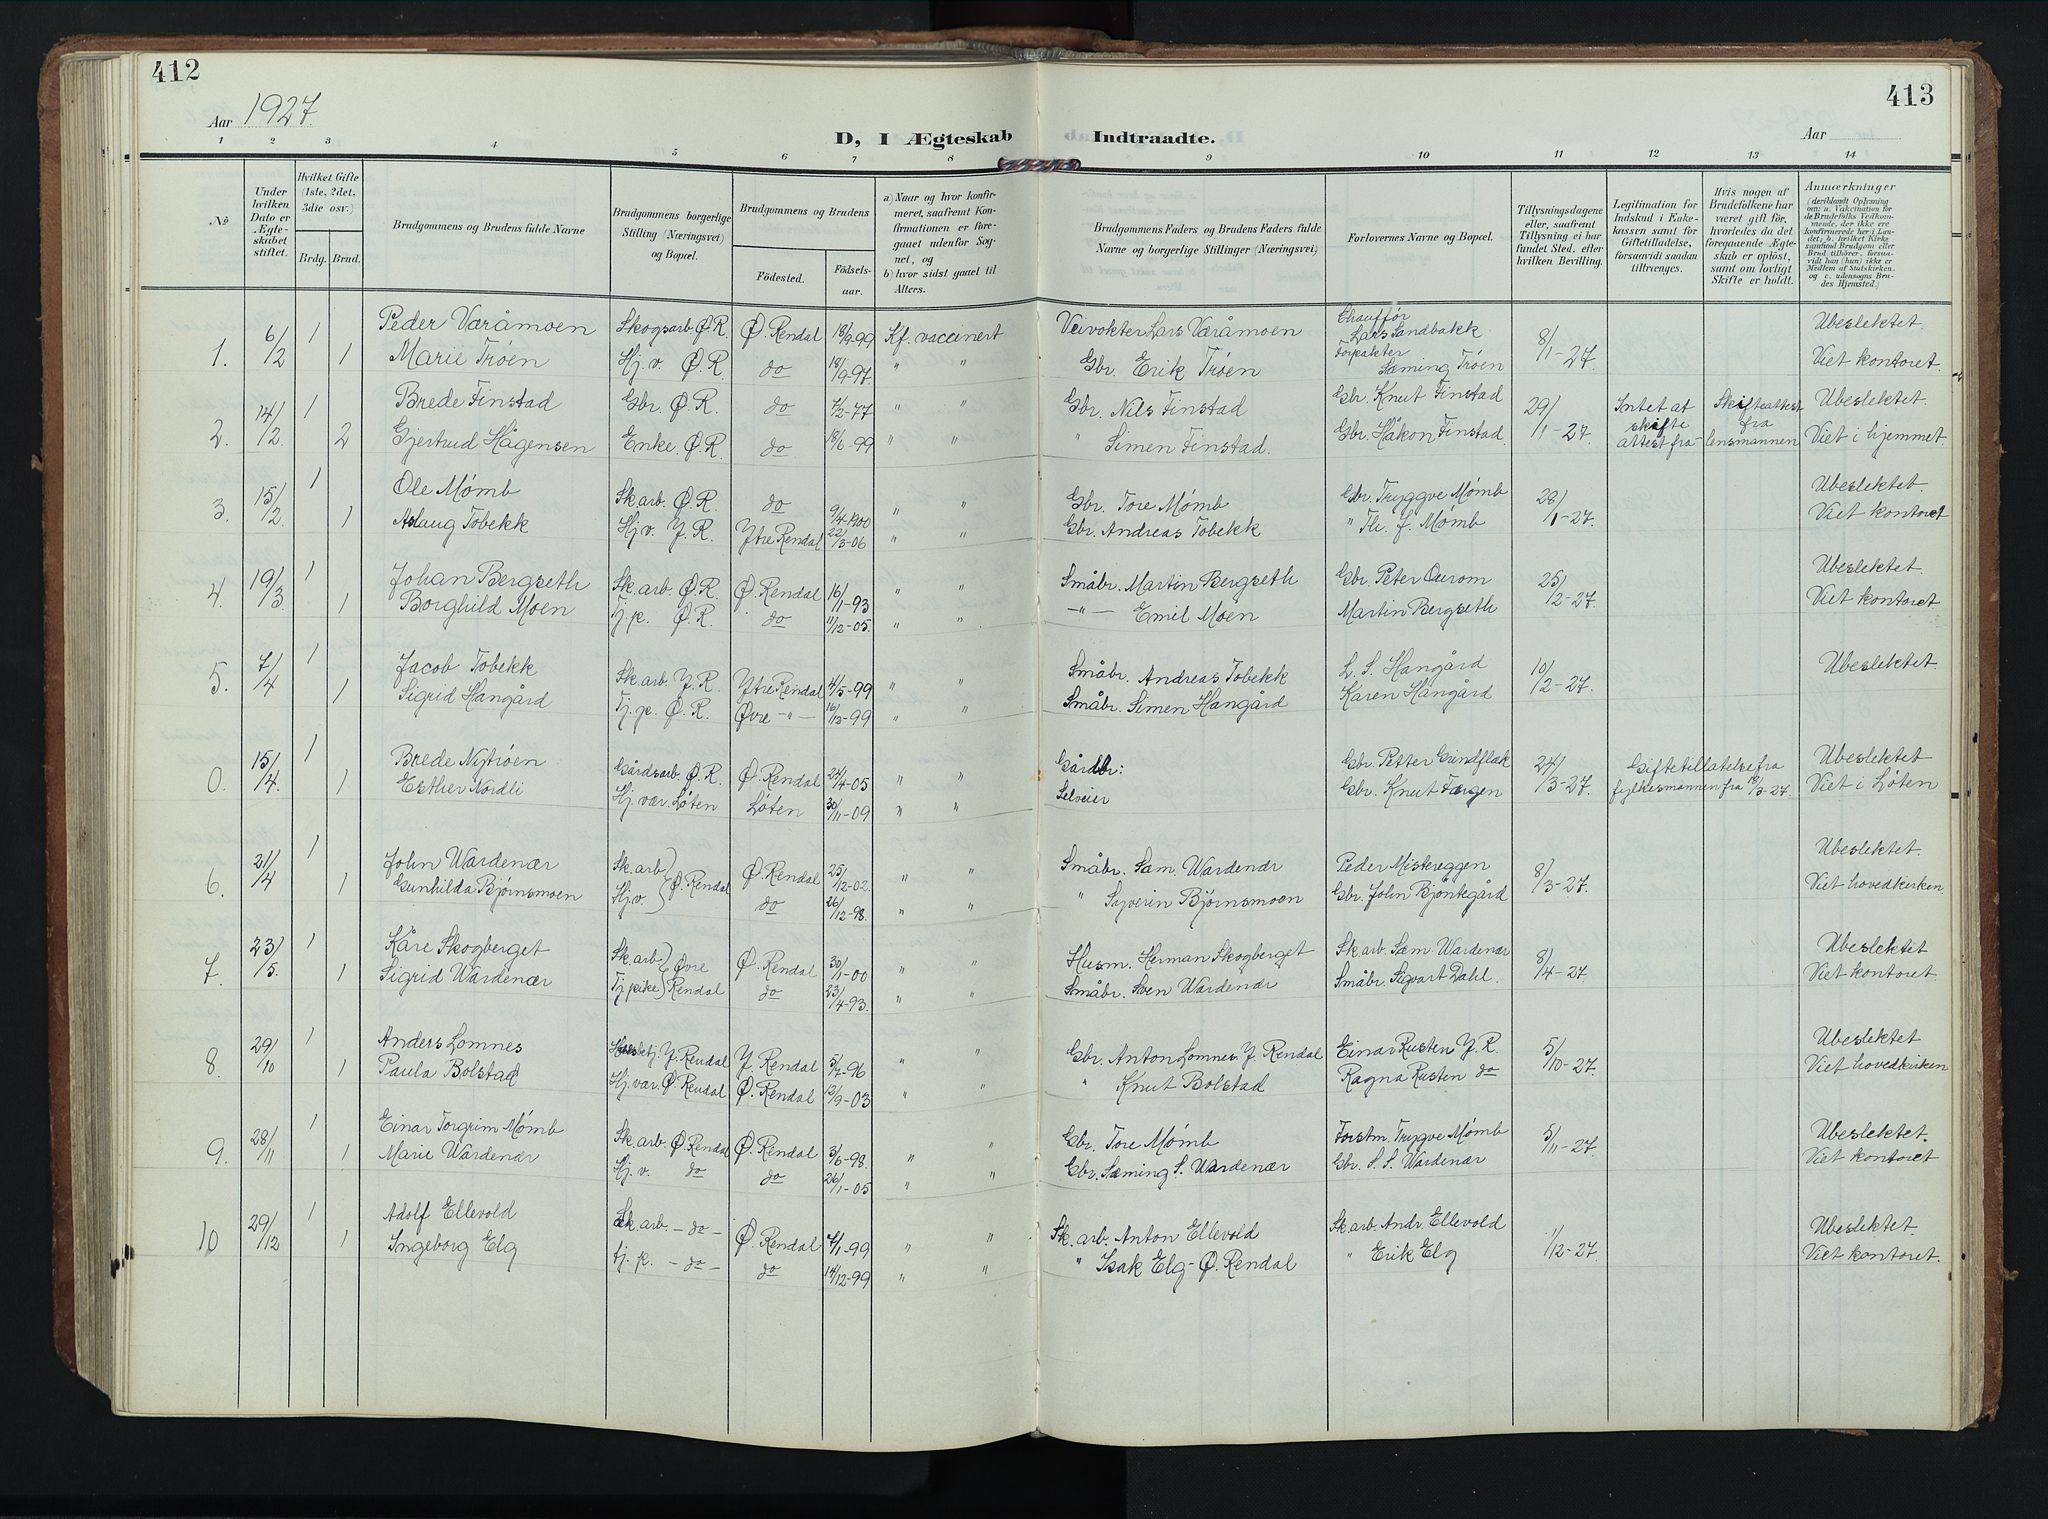 412
413
Aar 1927.
D, I Ægteskab Indtraadte.
Aar
1 2 3 4 5 6 7 8 9 10 11 12 13 14
№
Under hvilken Dato er Ægteskabet stiftet.
Hvilket Gifte (1ste, 2det, 3die osv.)
Brdg. Brud.
Brudgommens og Brudens fulde Navne
Brudgommens borgerlige Stilling (Næringsvei) og Bopæl.
Brudgommens og Brudens
Fødested. Fødselsaar.
a) Naar og hvor konfirmeret, saafremt Konfirmationen er foregaaet udenfor Sognet, og b) hvor sidst gaaet til Alters.
Brudgommens Faders og Brudens Faders fulde Navne og borgerlige Stillinger (Næringsvei)
Forlovernes Navne og Bopæl.
Tillysningsdagene eller, saafremt Tillysning ei har fundet Sted, efter hvilken Bevilling.
Legitimation for Indskud i Enkekassen samt for Giftetilladelse, forsaavidt saadan tiltrænges.
Hvis nogen af Brudefolkene har været gift før, hvorledes da det foregaaende Ægteskab er opløst, samt om lovligt Skifte er holdt.
Anmærkninger (deriblandt Oplysning om: a. Vakcination for de Brudefolks Vedkommende, der ikke ere konfirmerede her i Landet; b. hvilket Kirkesamfund Brudgom eller Brud tilhører, forsaavidt han (hun) ikke er Medlem af Statskirken, og c. udensogns Brudes Hjemsted.)
1. 6/2 1 Peder Væråmoen Skogsarb. Ø. R. Ø. Rendal 18/9-99 Kf. vaccinert Veivokter Lars Væråmoen Chauffør Lars Sandbakk 8/1-27 Ubeslektet.
1 Marie Trøen Hj.v. Ø. R. do 18/9-97. " " Gbr. Erik Trøen Forpakter Sæming Trøen Viet kontoret.
2. 14/2. 1 Brede Finstad Gbr. Ø. R. do 7/2-77 " " Gbr. Nils Finstad Gbr. Knut Finstad 29/1-27. Intet at skifte attest fra Skifteattest fra lensmannen Ubeslektet.
2 Gjertrud Hågensen Enke. Ø. R. do 18/6-99 " " " Simen Finstad. Gbr. Håkon Finstad. Viet i hjemmet.
3. 15/2. 1 Ole Mømb Sk.arb. Ø. R. do 9/4-1900 " " Gbr. Tore Mømb Gbr. Tryggve Mømb 28/1-27. Ubeslektet.
1 Aslaug Tobekk Hj.v. Y. R. Ytre Rendal 22/3-06 " " Gbr. Andreas Tobekk " Th. J. Mømb Viet kontoret
4. 19/3. 1 Johan Bergseth Sk.arb. Ø. R. Ø. Rendal 16/1-93 " " Småbr. Martin Bergseth Gbr. Peter Ourom 25/2-27. Ubeslektet.
1 Borghild Moen Tj.p. Ø. R. do 11/12-05. " " -"- Emil Moen Martin Bergseth Viet kontoret.
5. 7/4 1 Jacob Tobekk Sk.arb. Y. R. Ytre Rendal 4/5-99 " " Småbr. Andreas Tobekk L. S. Hangård 10/2-27. Ubeslektet.
1 Sigrid Hangård Tj.p. Ø. R. Øvre -"- 16/12-99 " " Småbr. Simen Hangård Karen Hangård
0. 15/4. 1 Brede Nytrøen Gårdsarb. Ø. R. Ø. Rendal 24/4-05 " " Gårdbr: Gbr. Petter Gundflak 24/3-27. Giftetillatelse fra Ubeslektet
1 Esther Nordli Hj.vær. Løten Løten 30/11-09 " " Selveier Gbr. Knut Fargen fylkesmannen fra 19/3-27 Viet i Løten
6. 21/4 1 John Wardenær Sk.arb Ø. Rendal Ø. Rendal 25/12-02. " " Småbr. Sam. Wardenær Peder Misterreggen 8/3-27. Ubeslektet.
1 Gunhilda Bjørnsmoen Hj.v. do 26/12-98. " " " Syverin Bjørnsmoen Gbr. John Bjøntegård Viet hovedkirken
7. 23/5. 1 Kåre Skogberget Sk.arb Øvre Ø. Rendal 30/1-00 " " Husm. Herman Skogberget Sk.arb Sæm. Wardenær 8/4-27. Ubeslektet
1 Sigrid Wardenær Tj.pike Rendal do 23/4-93. " " Småbr. Sven Wardenær Småbr. Sigvart Dahl. Viet kontoret.
8. 29/10 1 Anders Lomnes Y. Rendal Y. Rendal 5/7-96 " " Gbr. Anton Lomnes Y. Rendal Einar Rusten Y. R. 5/10-27. Ubeslektet
1 Paula Bolstad Hj.vær. Ø. Rendal Ø. Rendal 12/9-03 " " " Knut Bolstad Ragna Rusten do Viet hovedkirken
9. 28/11 1 Einar Torgrim Mømb Sk.arb. Ø. Rendal Ø. Rendal 3/6-98. " " Gbr. Tore Mømb Forstm. Trygve Mømb 5/11-27. Ubeslektet.
1 Marie Wardenær Hj.v. do do 26/1-05 " " Gbr. Sæming S. Wardenær Gbr. S. S. Wardenær Viet kontoret
10 29/12 1 Adolf Ellevold Sk.arb. -do- Ø. Rendal 4/1-99 " " Sk.arb. Anton Ellevold Sk.arb. Andr. Ellevold 1/12-27. Ubeslektet.
1 Ingeborg Elg tj.p. -do- do 14/12-99 " " " Isak Elg Ø. Rendal " Erik Elg Viet kontoret.